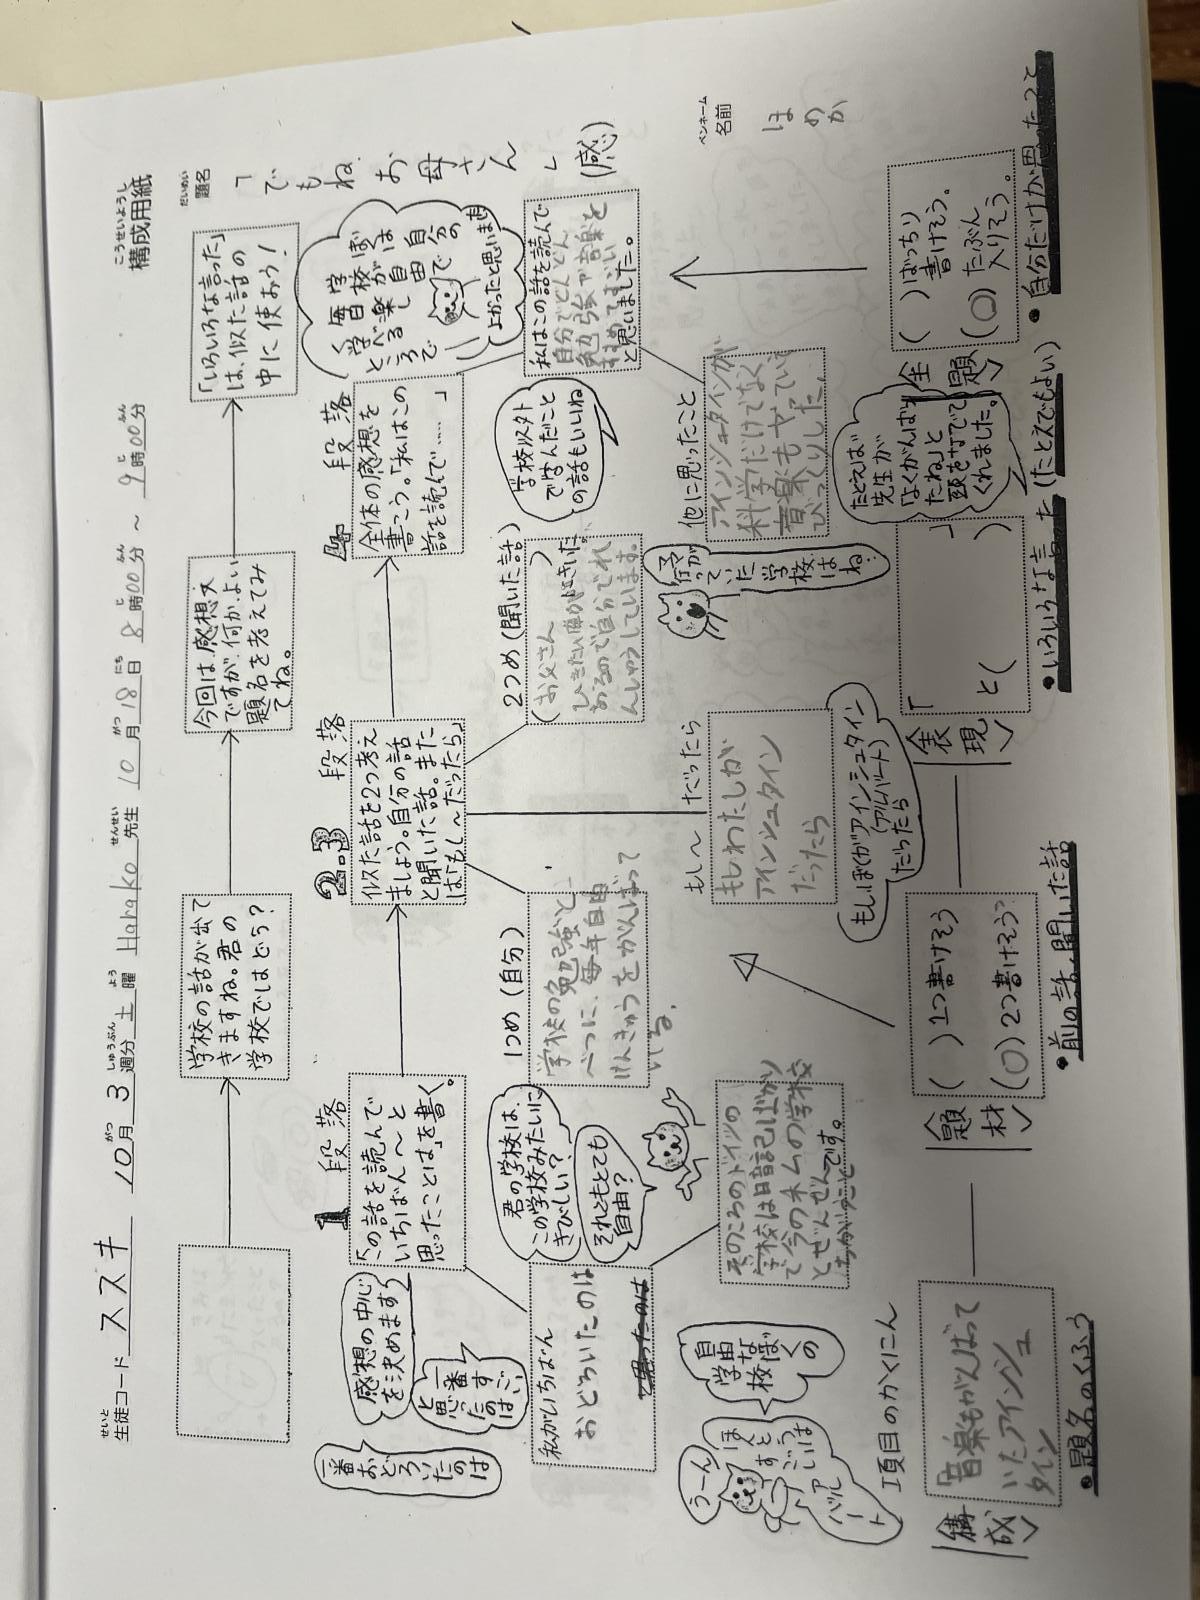 構成用紙
こうせいようし
生徒コード ススキ 10月3週分 土曜 Harako先生 10月18日8時00分～9時00分
せいと
がつ
しゅうぶん
よう
せんせい
がつ
にち
じ
ふん
じ
ふん
題名
だいめい
「でもね、お母さん」(感)
ペンネーム
名前
ほのか
学校の話が出て
きますね。君の
学校ではどう?
今回は感想文
ですが、何かよい
題名を考えてみ
てね。
「いろいろな言った」
は、似た話の
中に使おう!
1段落
「この話を読んで
いちばん～と
思ったことは」を書く。
2.3段落
似た話を2つ考え
ましょう。自分の話
と聞いた話。また
は「もし～だったら」
4段落
全体の感想を
書こう。「私はこの
話を読んで……」
一番おどろいたのは
感想の中心
を決めます
一番すごい
と思ったのは
私がいちばん
おどろいたのは
君の学校は、
この学校みたいに
きびしい?
それともとても
自由?
1つめ(自分)
学校の勉強と
べつに、毎年自由
けんきゅうをがんばって
いる。
2つめ(聞いた話)
(お父さん)
学校以外
で学んだこと
の話もいいね
学校は
毎日が自由
で
自分の
ところで
よかったと思います
私はこの話を読んで
自分でどんどん
勉強や音楽を
と思いました。
うーん
ほんとうに
すごいは
アルバート
自由な
学校
ぼくの
そのころのドイツの
学校は暗記ばかり
で今のホームの学校
とぜんぜん
ちがいます。
もし～だったら
もしわたしが
アインシュタイン
だったら
もしぼくがアインシュタイン
(アルバート)
だったら
予が
っていた学校は
ね。
他に思ったこと
アインシュタインが
科学だけでなく
音楽もやっていて
びっくりした。
項目のかくにん
<構成>
「音楽もがんばって
いたアインシュ
タイン
●題名のくふう
<題材>
( )1つ書けそう
(○)2つ書けそう
●前の話、聞いた話
<表現>
「 」
と( )
たとえば
先生が
「よくがんばっ
たね」と
頭を打でて
くれました。
●いろいろな言った(たとえでもよい)
<主題>
( )ばっちり
書けそう。
(○)たぶん
入りそう。
●自分だけが思ったこと